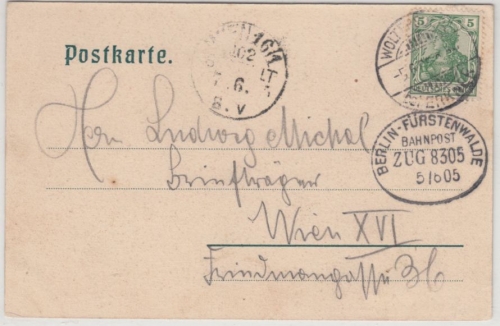 Postkarte.
16/1
6.
8. V
5 5
WOLT
BERLIN-FÜRSTENWALDE
BAHNPOST
ZUG 8305
5/6 05
Herrn Ludwig Michal
Briefträger
Wien XVI
Friedmanngasse 36